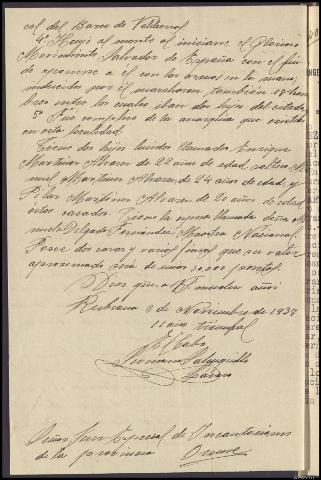 cel del Barco de Valdeorras
4º Huyó al monte al iniciarse el Glorioso
Movimiento Salvador de España con el fin
de oponerse a él con las armas en la mano,
inducidos por él marcharon también 18 hom
bres entre los cuales iban dos hijos del citado,
5º Fue complice de la anarquia que existia
en esta localidad.
Tiene dos hijos huidos llamados Enrique
Martinez Alvarez de 22 años de edad soltero
Martinez Alvarez de 24 años de edad, y
Pilar Martinez Alvarez de 20 años de edad
estos casados. Tiene la esposa llamada doña
Delgado Fernandez, Maestra Nacional.
Posee dos casas y varias fincas que su valor
aproximado será de unas 30,000 pesetas.
Dios guarde a V.S. muchos años
Rubiana 8 de Noviembre de 1937
II año Triunfal
El Cabo
Señor Juez Especial de Incautaciones
de la provincia Orense